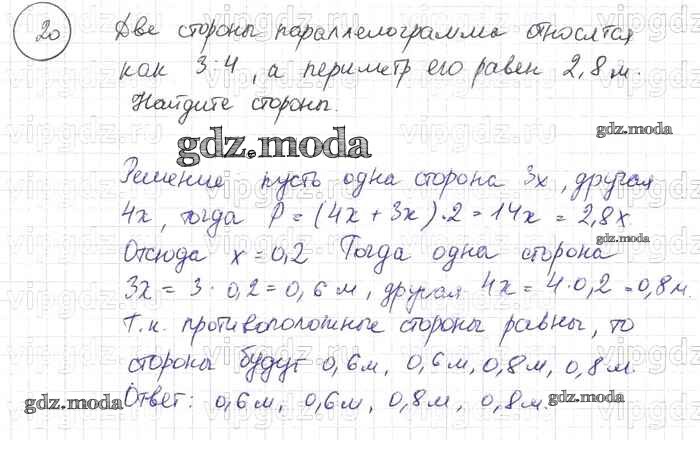 20 Две стороны параллелограмма относятся
как 3:4, а периметр его равен 2,8 м.
Найдите стороны.
gdz.moda
gdz.moda
Решение пусть одна сторона 3x, другая
4x, тогда P = (4x + 3x)·2 = 14x = 2,8x
gdz.moda
Отсюда x = 0,2 Тогда одна сторона
3x = 3·0,2 = 0,6 м, другая 4x = 4·0,2 = 0,8 м.
Т.к. противоположные стороны равны, то
стороны будут 0,6м, 0,6м, 0,8м, 0,8м.
Ответ: 0,6м, 0,6м, 0,8м, 0,8м.
gdz.moda
gdz.moda